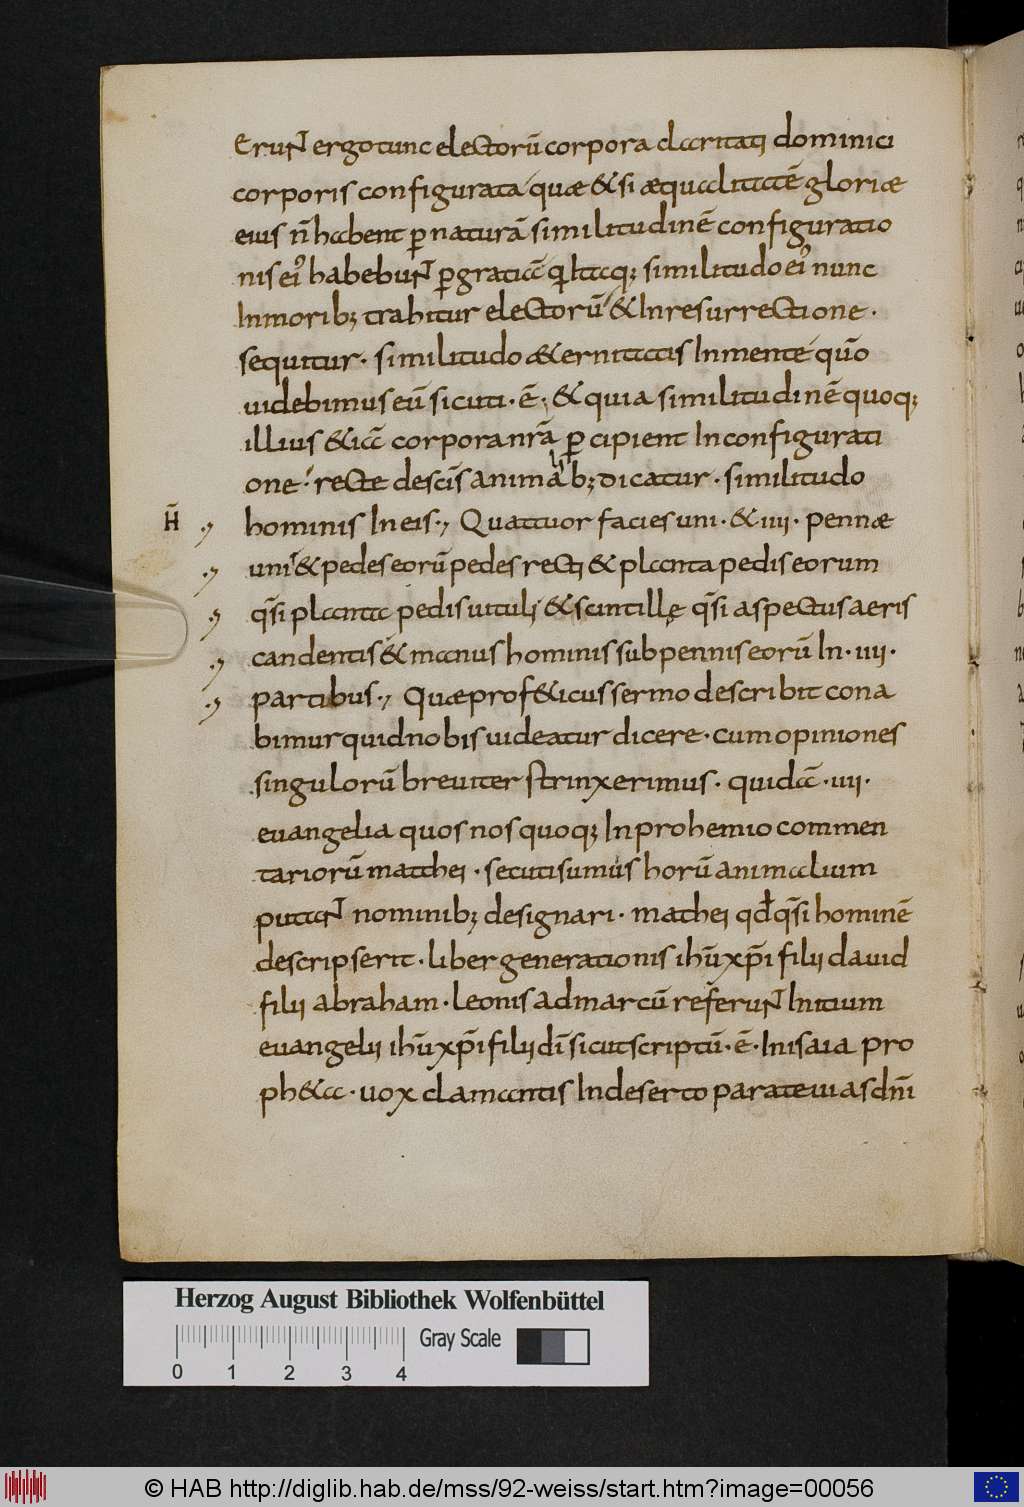 Erunt ergo tunc electorū corpora claritati dominici
corporis configurata quæ & si æqualitatē gloriæ
eius n̄ habent ꝑ naturā similitudinē configuratio
nis eiꝰ habebunt ꝑ gratiā qͥ itaq; similitudo eiꝰ nunc
In morib; trahitur electorū & In resurrectione ·
sequitur · similitudo æternitatis In mente quō
uidebimus eū sicuti · ē · & quia similitudinē quoq;
illius &iā corpora nr̄a ꝑcipient In configurati
one · recte de sc̄is animalib; dicatur · similitudo
H̄ hominis In eis ·, Quattuor facies uni · & iiii · pennæ
uni & pedes eorū pedes recti & planta pedis eorum
qͣsi planta pedis uituli & scintillę qͣsi aspectus aeris
candentis & manus hominis sub pennis eorū In · iiii ·
partibus ·, Quæ prof&icus sermo describit cona
bimur quid nobis uideatur dicere · cum opiniones
singulorū breuiter strinxerimus · quidā · iiii ·
euangelia quos nos quoq; In prohemio commen
tariorū matthei · secuti sumus horū animalium
putant nominib; designari · mathei qd̄ qͣsi hominē
descripserit · liber generationis ihū xp̄i filii dauid
filii abraham · leonis ad marcū referunt Initium
euangelii ihū xp̄i filii dī sicut scriptū · ē · In isaia pro
ph&a · uox clamantis In deserto parate uias dn̄i
Herzog August Bibliothek Wolfenbüttel
Gray Scale
0 1 2 3 4
© HAB http://diglib.hab.de/mss/92-weiss/start.htm?image=00056